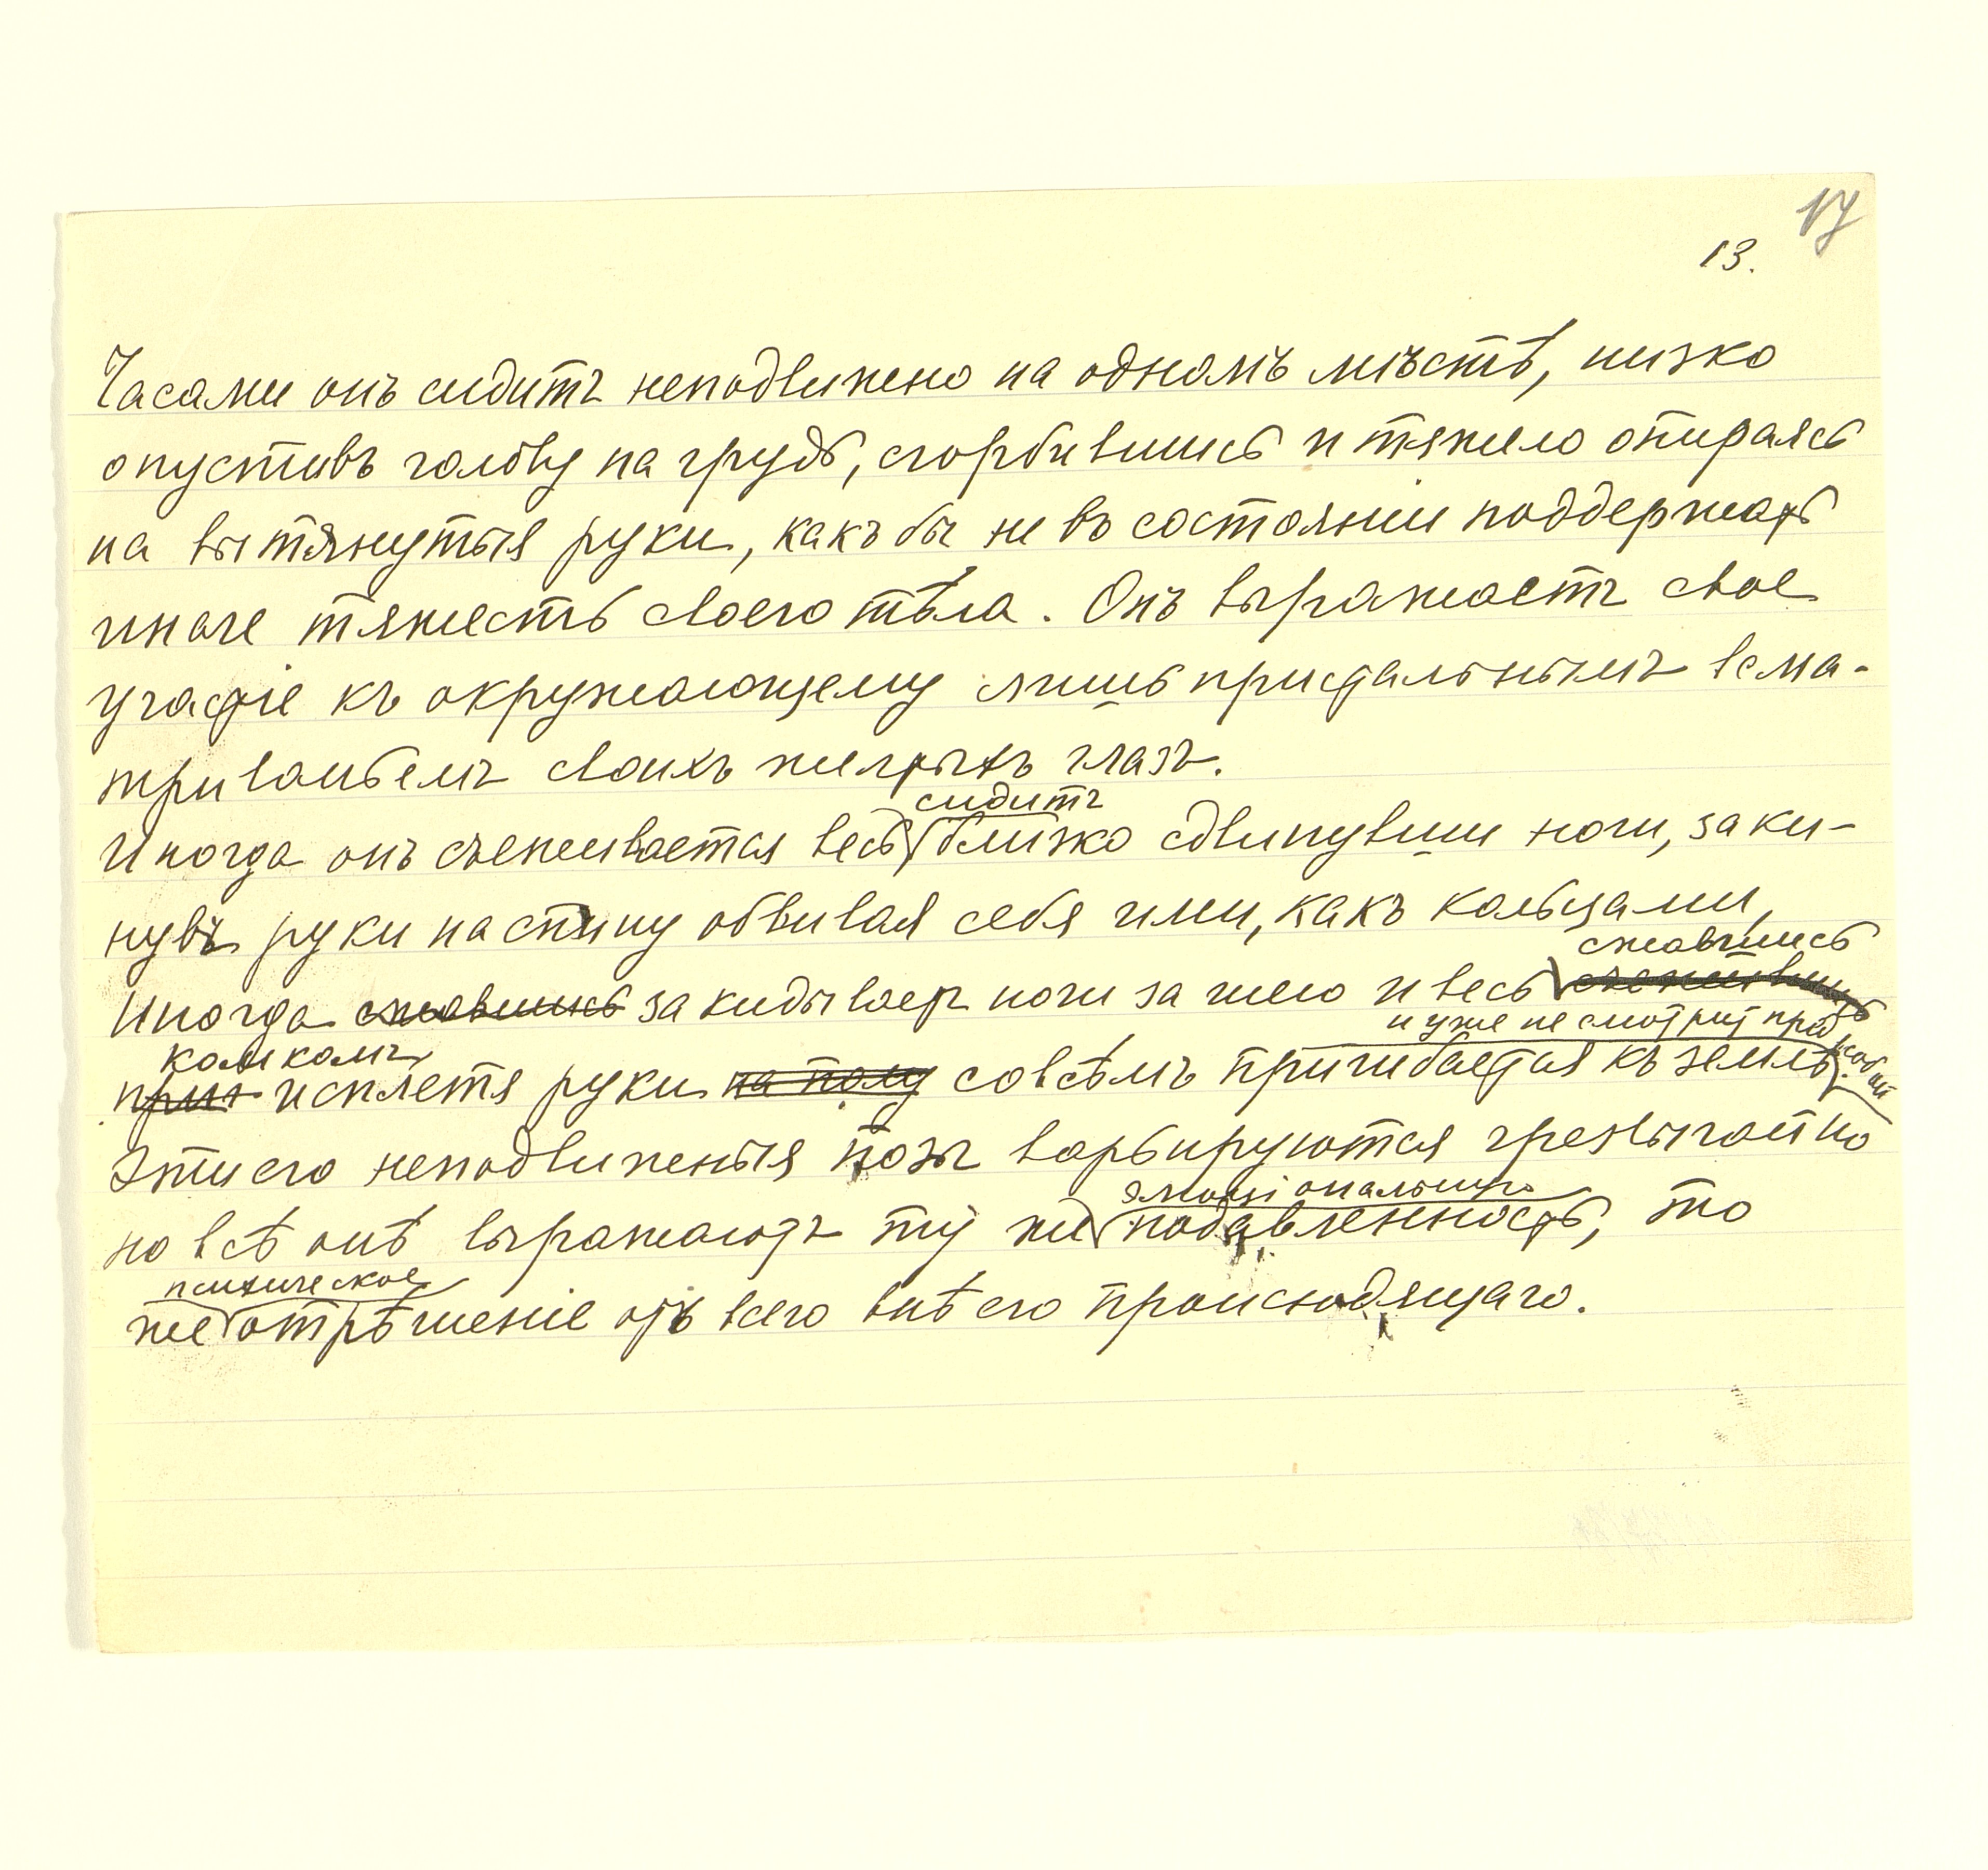 17
13.
Часами онъ сидитъ неподвижно на одномъ мѣстѣ, низко
опустивъ голову на грудь, сгорбившись и тяжело опираясь
на вытянутыя руки, какъ бы не въ состояніи поддержать
иначе тяжесть своего тѣла. Онъ выражаетъ свое
участіе къ окружающему лишь пристальнымъ всма-
триваньемъ своихъ желтыхъ глазъ.
сидитъ
Иногда онъ съеживается весь близко сдвинувши ноги, заки-
нувъ руки на спину обвивая себя ими, какъ кольцами,
сжавшись
Иногда сжавшись закидывает ноги за шею и весь съежившись
и уже не смотрит пред собой
комкомъ
при и сплетя руки на полу совсѣмъ пригибается къ землѣ.
Эти его неподвижныя позы варьируются чрезвычайно
эмоціональную
но всѣ онѣ выражаютъ ту же подавленность, то
психическое
же отрѣшеніе отъ всего внѣ его происходящаго.